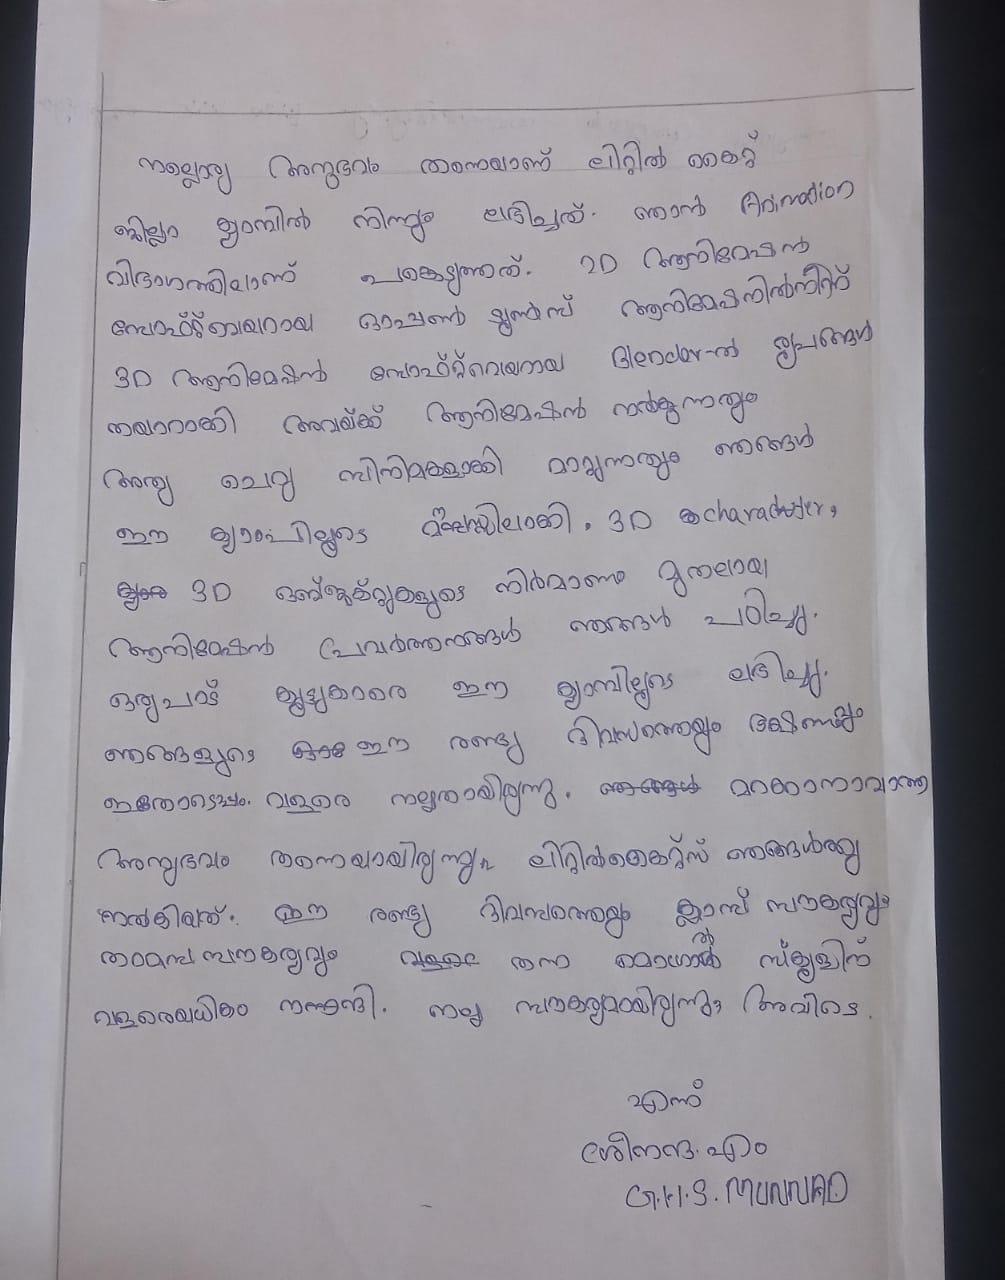 നല്ലൊരു അനുഭവം തന്നെയാണ് ലിറ്റിൽ കൈറ്റ്
ജില്ലാ ക്യാമ്പിൽ നിന്നും ലഭിച്ചത്. ഞാൻ Animation
വിഭാഗത്തിലാണ് പങ്കെടുത്തത്. 2D ആനിമേഷൻ
സോഫ്റ്റ്‌വെയറായ ഓപ്പൺ ട്യൂൺസ് ആനിമേഷനിൽനിന്ന്
3D ആനിമേഷൻ സോഫ്റ്റ്‌വെയറായ Blender-ൽ രൂപങ്ങൾ
തയാറാക്കി അവയ്ക്ക് ആനിമേഷൻ നൽകുന്നതും
അതു ചെറു സിനിമകളാക്കി മാറ്റുന്നതും ഞങ്ങൾ
ഈ ക്യാംപിലൂടെ മനസ്സിലാക്കി. 3D character,
3D ഒബ്ജക്റ്റുകളുടെ നിർമാണം മുതലായ
ആനിമേഷൻ പ്രവർത്തനങ്ങൾ ഞങ്ങൾ പഠിച്ചു.
ഒരുപാട് കൂട്ടുകാരെ ഈ ക്യാമ്പിലൂടെ ലഭിച്ചു.
ഞങ്ങളുടെ ഈ രണ്ടു ദിവസത്തെയും ഭക്ഷണവും
ഇതോടൊപ്പം വളരെ നല്ലതായിരുന്നു. മറക്കാനാവാത്ത
അനുഭവം തന്നെയായിരുന്നു ലിറ്റിൽകൈറ്റ്സ് ഞങ്ങൾക്കു
നൽകിയത്. ഈ രണ്ടു ദിവസത്തെയും ക്ലാസ് സൗകര്യവും
താമസസൗകര്യവും തന്ന സ്കൂളിന്
വളരെയധികം നന്ദി. നല്ല സൗകര്യമായിരുന്നു അവിടെ.
എന്ന്
ശ്രീനന്ദ. എം
G.H.S. MUNNAD